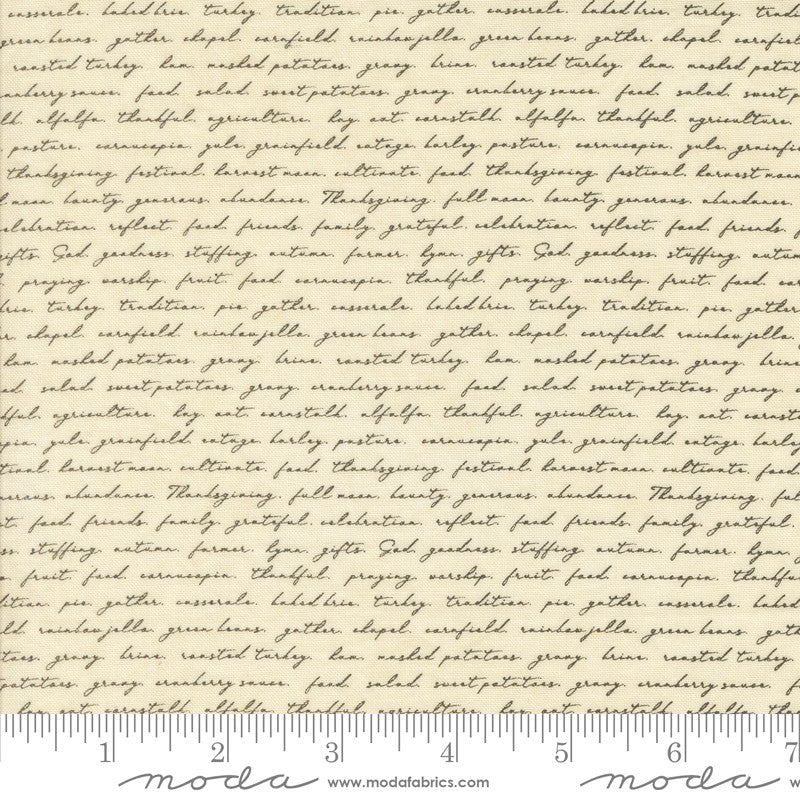 casserole. baked brie. turkey. tradition. pie. gather. casserole. baked brie. turkey. tradi
green beans. gather. chapel. cornfield. rainbow jello. green beans. gather. chapel. cornfiel
roasted turkey. ham. mashed potatoes. gravy. brine. roasted turkey. ham. mashed potat
anberry sauce. food. salad. sweet potatoes. gravy. cranberry sauce. food. salad. sweet p
lk. alfalfa. thankful. agriculture. hay. oat. cornstalk. alfalfa. thankful. agriculture.
pasture. cornucopia. yule. grainfield. cotage. barley. pasture. cornucopia. yule. grainfie
thanksgiving. festival. harvest moon. cultivate. food. thanksgiving. festival. harvest moon
l moon. bounty. generous. abundance. Thanksgiving. full moon. bounty. generous. abundance.
elebration. reflect. food. friends. family. grateful. celebration. reflect. food. friends. f
gifts. God. goodness. stuffing. autumn. farmer. hymn. gifts. God. goodness. stuffing. autum
praying. worship. fruit. food. cornucopia. thankful. praying. worship. fruit. food. cor
brie. turkey. tradition. pie. gather. casserole. baked brie. turkey. tradition. pie. gather
r. chapel. cornfield. rainbow jello. green beans. gather. chapel. cornfield. rainbow jello.
ham. mashed potatoes. gravy. brine. roasted turkey. ham. mashed potatoes. gravy. brine
od. salad. sweet potatoes. gravy. cranberry sauce. food. salad. sweet potatoes. gravy. c
kful. agriculture. hay. oat. cornstalk. alfalfa. thankful. agriculture. hay. oat. cornst
opia. yule. grainfield. cotage. barley. pasture. cornucopia. yule. grainfield. cotage. barley
tival. harvest moon. cultivate. food. thanksgiving. festival. harvest moon. cultivate. food.
nerous. abundance. Thanksgiving. full moon. bounty. generous. abundance. Thanksgiving. ful
t. food. friends. family. grateful. celebration. reflect. food. friends. family. grateful.
ss. stuffing. autumn. farmer. hymn. gifts. God. goodness. stuffing. autumn. farmer. hymn.
fruit. food. cornucopia. thankful. praying. worship. fruit. food. cornucopia. thankfu
dition. pie. gather. casserole. baked brie. turkey. tradition. pie. gather. casserole. baked
ld. rainbow jello. green beans. gather. chapel. cornfield. rainbow jello. green beans. gath
toes. gravy. brine. roasted turkey. ham. mashed potatoes. gravy. brine. roasted turkey.
potatoes. gravy. cranberry sauce. food. salad. sweet potatoes. gravy. cranberry sauce. f
hay. oat. cornstalk. alfalfa. thankful. agriculture. hay. oat. cornstalk. alfalfa. thankf
1 2 3 4 5 6 7
moda www.modafabrics.com moda w